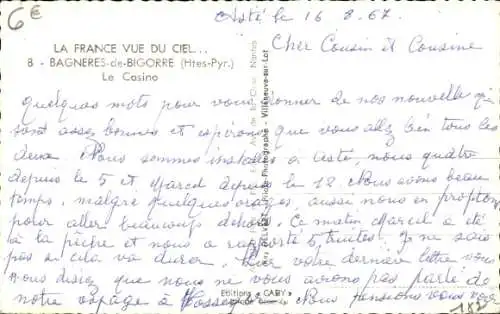 6€
Asté le 16 8.67.
LA FRANCE VUE DU CIEL...
8 - BAGNERES-de-BIGORRE (Htes-Pyr.)
Le Casino
Cher Cousin et Cousine
quelques mots pour vous donner de nos nouvelle qui
sont assez bonnes et espérons que vous allez bien tous les
deux. Nous sommes installés à Asté, nous quatre
depuis le 5 et Marcel depuis le 12. Nous avons beau
temps, malgré quelques orages, aussi nous en profitons
pour aller beaucoup dehors. Ce matin Marcel a été
à la pêche et nous a rapporté 5 truites. Je ne sais
pas si cela va durer. Hier votre dernière lettre vous
nous disiez que nous ne vous avions pas parlé de
notre voyage à Hossegor. Nous pensions vous voir
Editions "CABY"